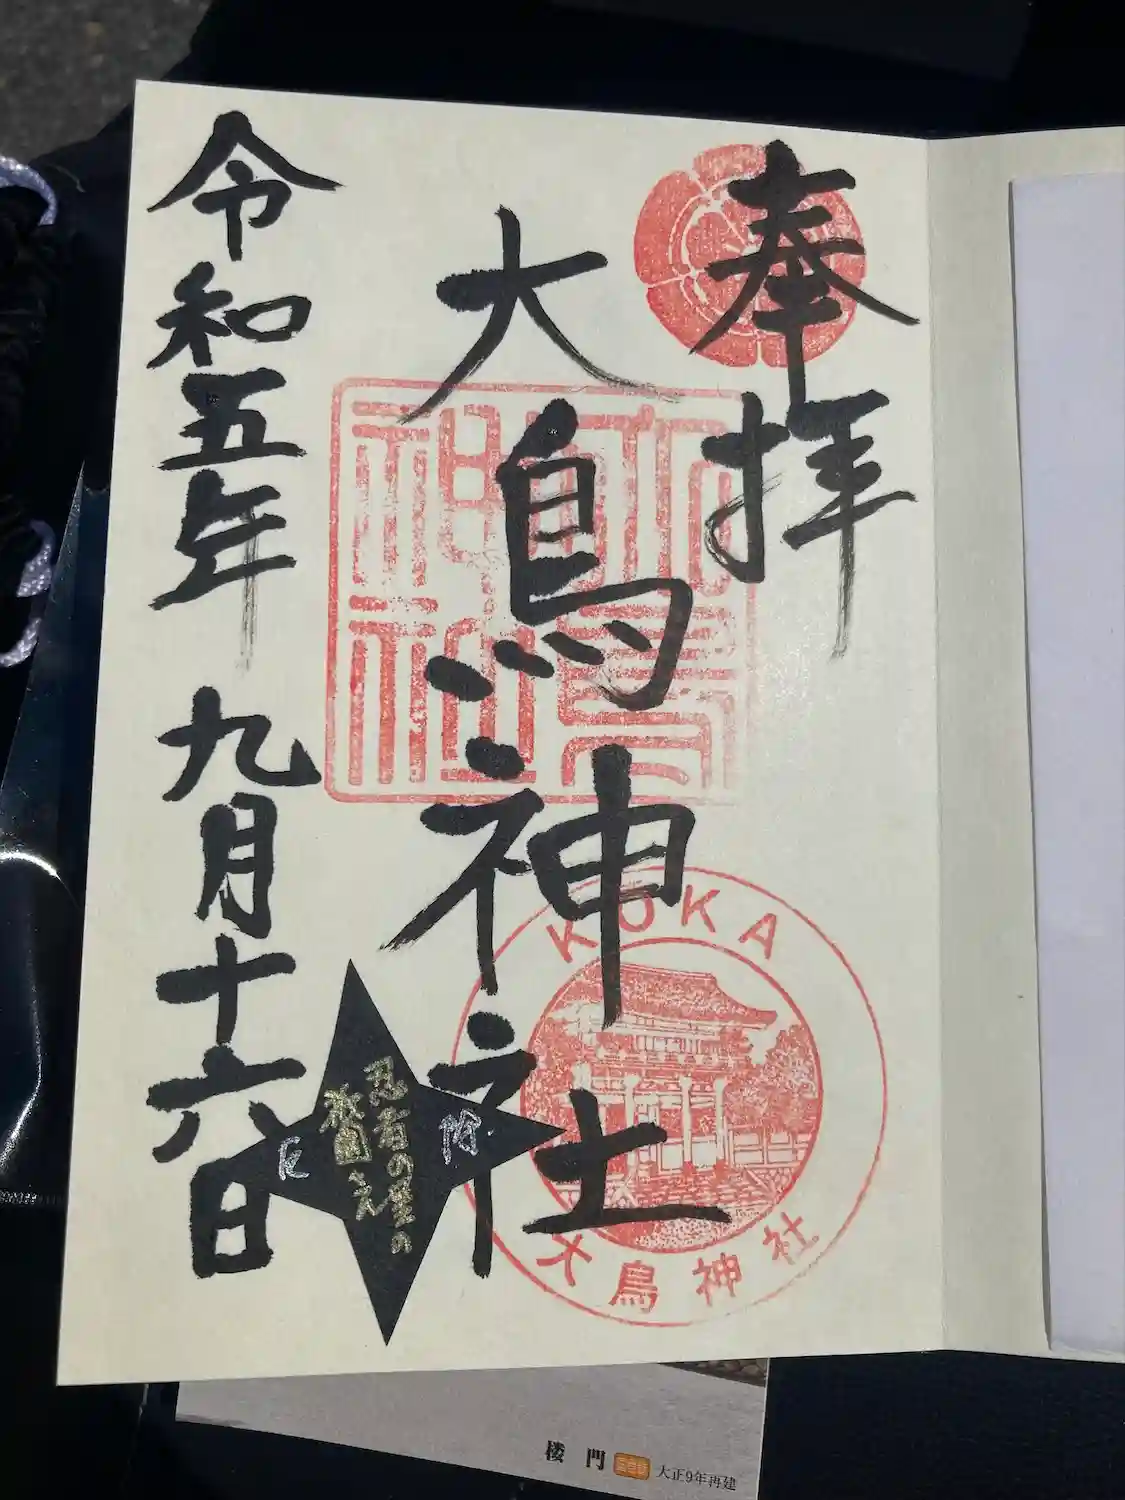 奉拝
大鳥神社
令和五年 九月十六日
KOKA
大鳥神社
忍者の里の
祇園さん
楼門
大正9年再建